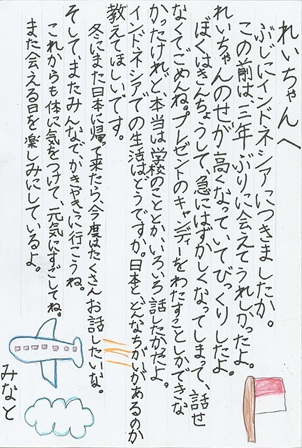 れいちゃんへ
ぶじにインドネシアにつきましたか。
この前は三年ぶりに会えてうれしかったよ。
れいちゃんのせが高くなっていてびっくりしたよ。
ぼくはきんちょうして、急にはずかしくなってしまって、話せ
なくてごめんね。プレゼントのキャンディーをわたすことしかできな
かったけれど、本当は学校のこととかいろいろ話したかったよ。
インドネシアでの生活はどうですか。日本と、どんなちがいがあるのか
教えてほしいです。
冬にまた日本に帰って来たら、今度はたくさんお話したいな。
そしてまたみんなでかきやきに行こうね。
これからも体に気をつけて、元気にすごしてね。
また会える日を楽しみにしているよ。
みなと